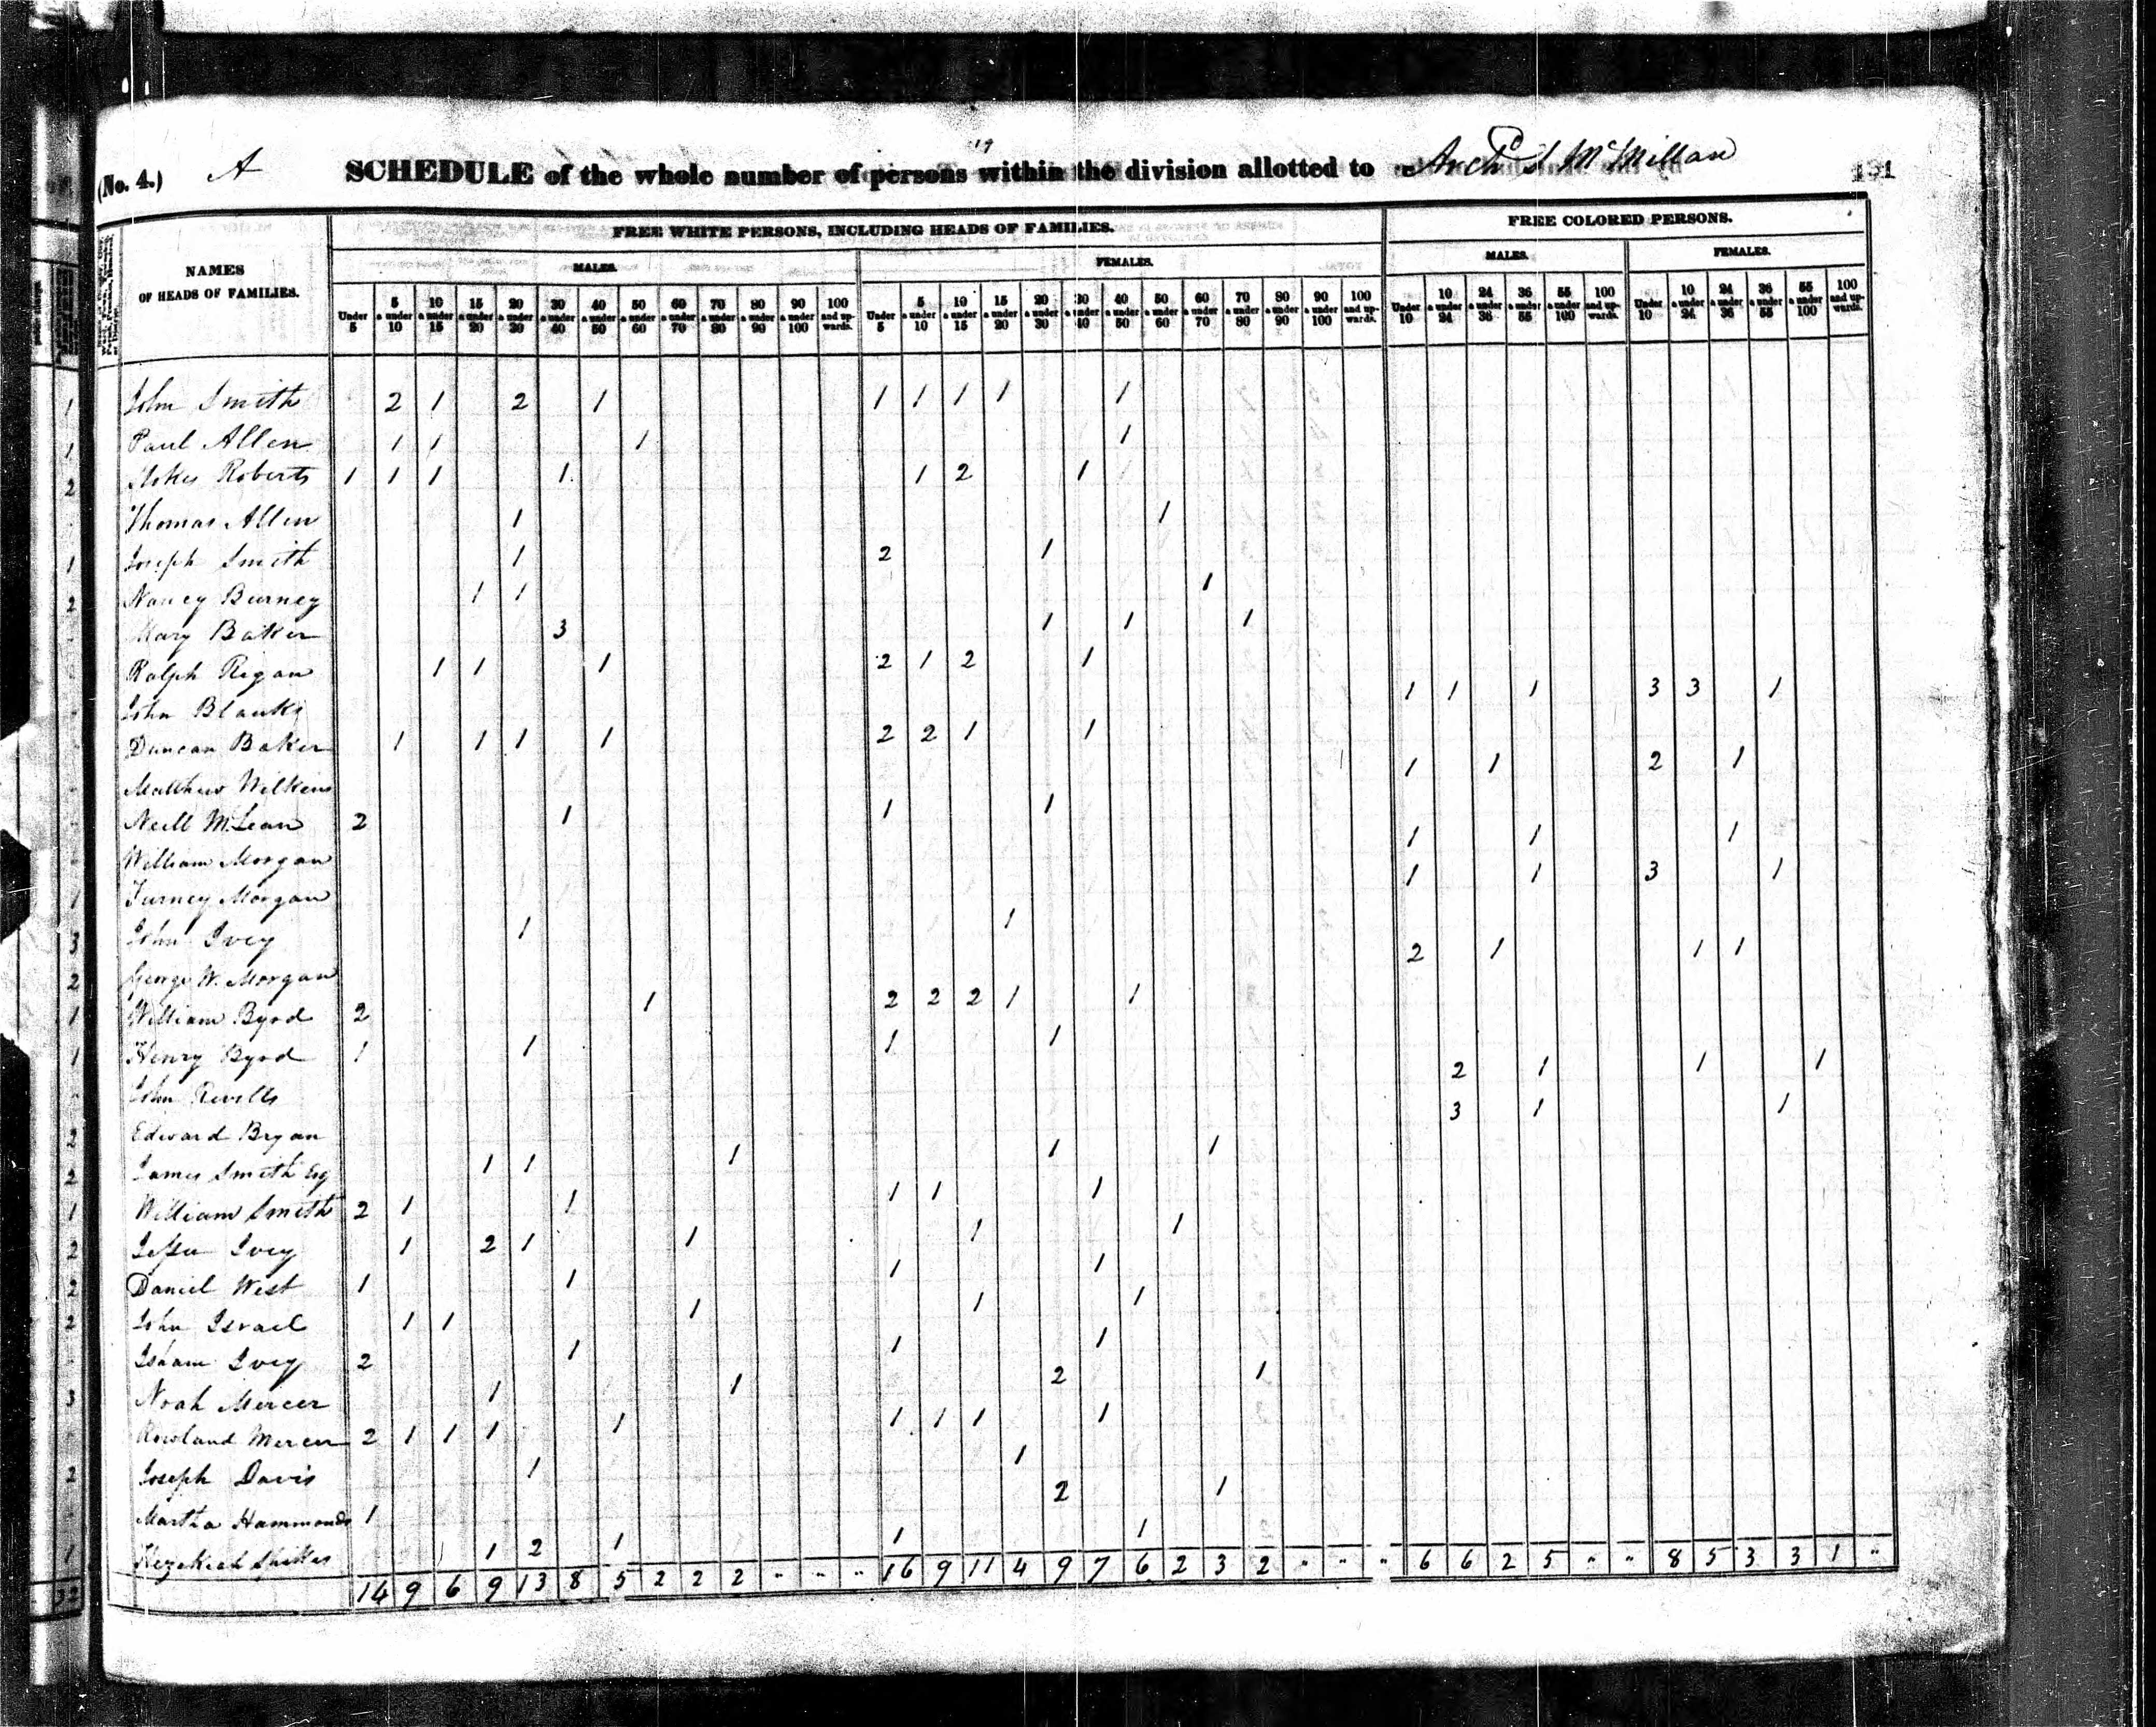 (No. 4.) A SCHEDULE of the whole number of persons within the division allotted to Arch'd S McMillan
19
191
NAMES OF HEADS OF FAMILIES.
FREE WHITE PERSONS, INCLUDING HEADS OF FAMILIES.
FREE COLORED PERSONS.
MALES.
FEMALES.
MALES.
FEMALES.
Under 5 | 5 & under 10 | 10 & under 15 | 15 & under 20 | 20 & under 30 | 30 & under 40 | 40 & under 50 | 50 & under 60 | 60 & under 70 | 70 & under 80 | 80 & under 90 | 90 & under 100 | 100 and upwards. | Under 5 | 5 & under 10 | 10 & under 15 | 15 & under 20 | 20 & under 30 | 30 & under 40 | 40 & under 50 | 50 & under 60 | 60 & under 70 | 70 & under 80 | 80 & under 90 | 90 & under 100 | 100 and upwards. | Under 10 | 10 & under 24 | 24 & under 36 | 36 & under 55 | 55 & under 100 | 100 and upwards. | Under 10 | 10 & under 24 | 24 & under 36 | 36 & under 55 | 55 & under 100 | 100 and upwards.
1 John Smith 2 1 2 1 1 1 1 1 1
1 Paul Allen 1 1 1 1
2 Stokes Roberts 1 1 1 1 1 2 1
Thomas Allen 1 1
1 Joseph Smith 1 2 1
2 Nancy Burney 1 1 1
Mary Baker 3 1 1 1
Ralph Regan 1 1 1 2 1 2 1
John Blanks 1 1 1 3 3 1
Duncan Baker 1 1 1 1 2 2 1 1
Matthew Wilkins 1 1 2 1
Neill McLean 2 1 1 1
William Morgan 1 1 1
1 Furney Morgan 1 1 3 1
3 John Ivey 1 1
2 George W. Morgan 2 1 1 1
1 William Byrd 2 1 2 2 2 1 1
1 Henry Byrd 1 1 1 1
John Revills 2 1 1 1
2 Edward Bryan 3 1 1
2 James Smith Esq 1 1 1 1 1
1 William Smith 2 1 1 1 1 1
2 Jesse Ivey 1 2 1 1 1 1
2 Daniel West 1 1 1 1
2 John Israel 1 1 1 1 1
Isham Ivey 2 1 1 1
3 Noah Mercer 1 1 2 1
Rowland Mercer 2 1 1 1 1 1 1 1 1
2 Joseph Davis 1 1
Martha Hammonds 1 2 1
1 Hezekiah 1 2 1 1 1
32 14 9 6 9 13 8 5 2 2 2 " " " 16 9 11 4 9 7 6 2 3 2 " " " 6 6 2 5 " " 8 5 3 3 1 "